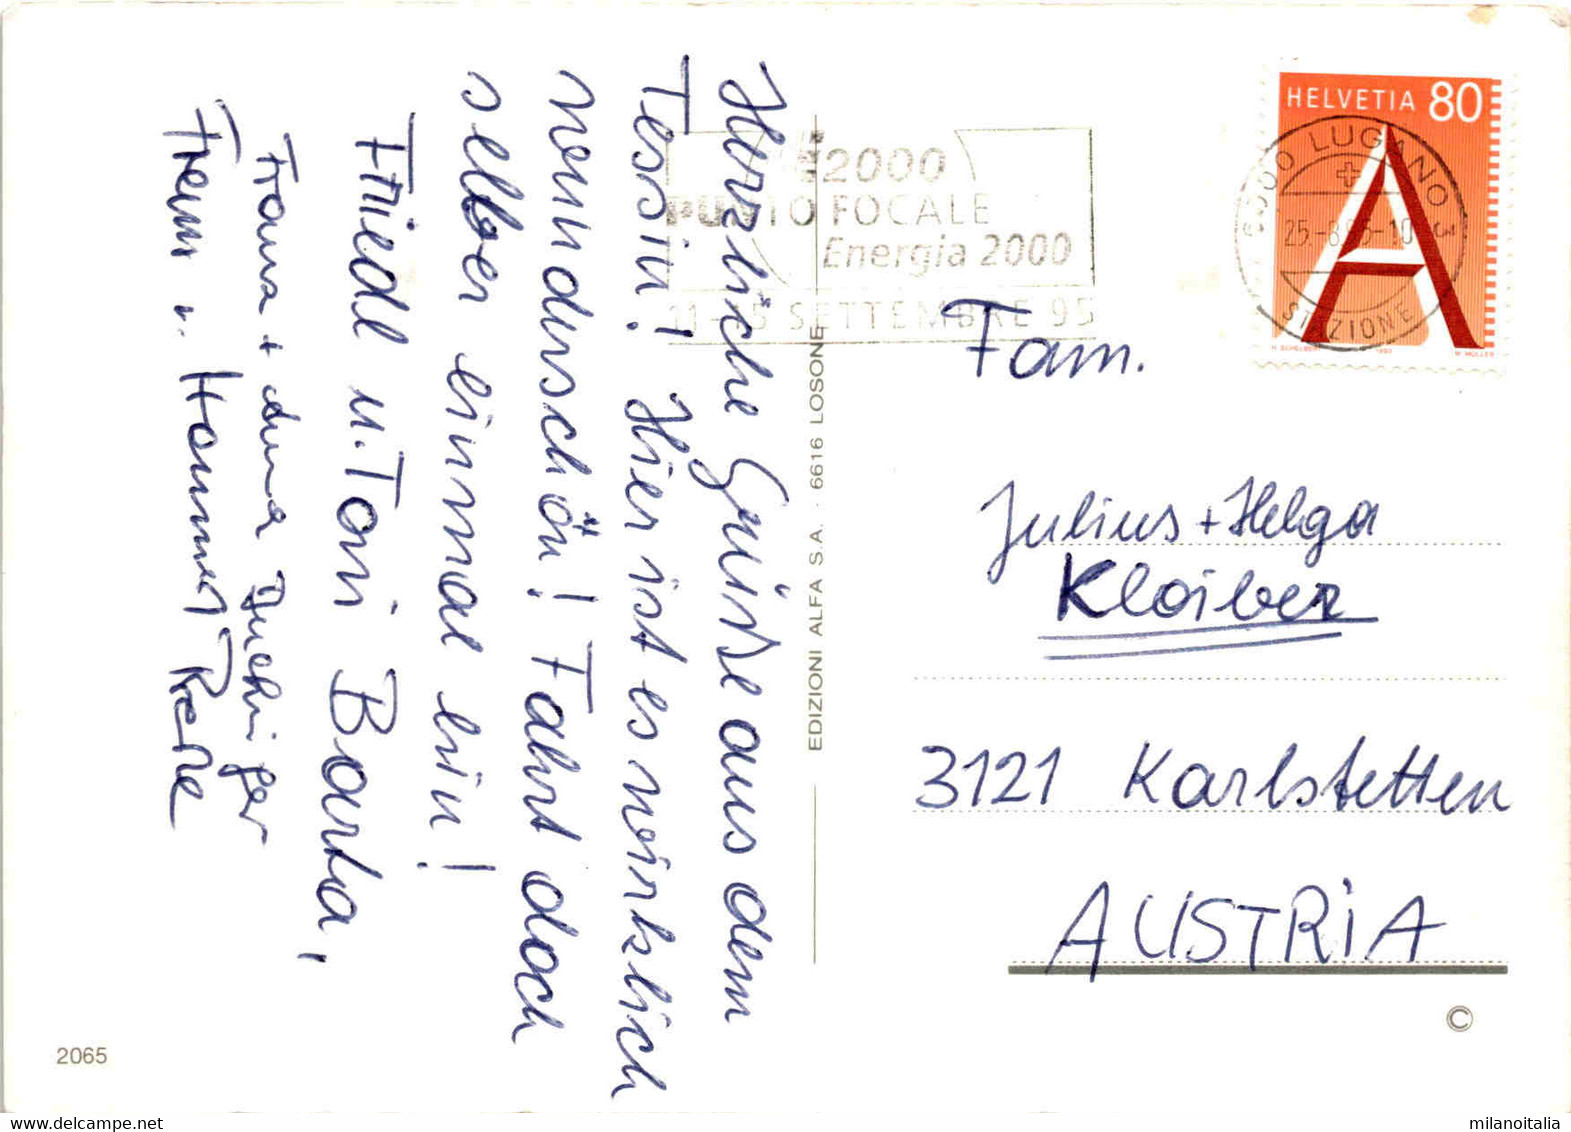 Herzliche Grüße aus dem
Tessin! Hier ist es wirklich
wunderschön! Fahrt doch
selber einmal hin!
Friedl u. Toni Barta,
Franz u.
EDIZIONI ALFA S.A. · 6616 LOSONE
2065
2000
PUNTO FOCALE
Energia 2000
11-15 SETTEMBRE 95
HELVETIA 80
A
6900 LUGANO 3
25.-8.95-10
STAZIONE
Fam.
Julius + Helga
Kloiber
3121 Karlstetten
AUSTRIA
©
www.delcampe.net
milanoitalia